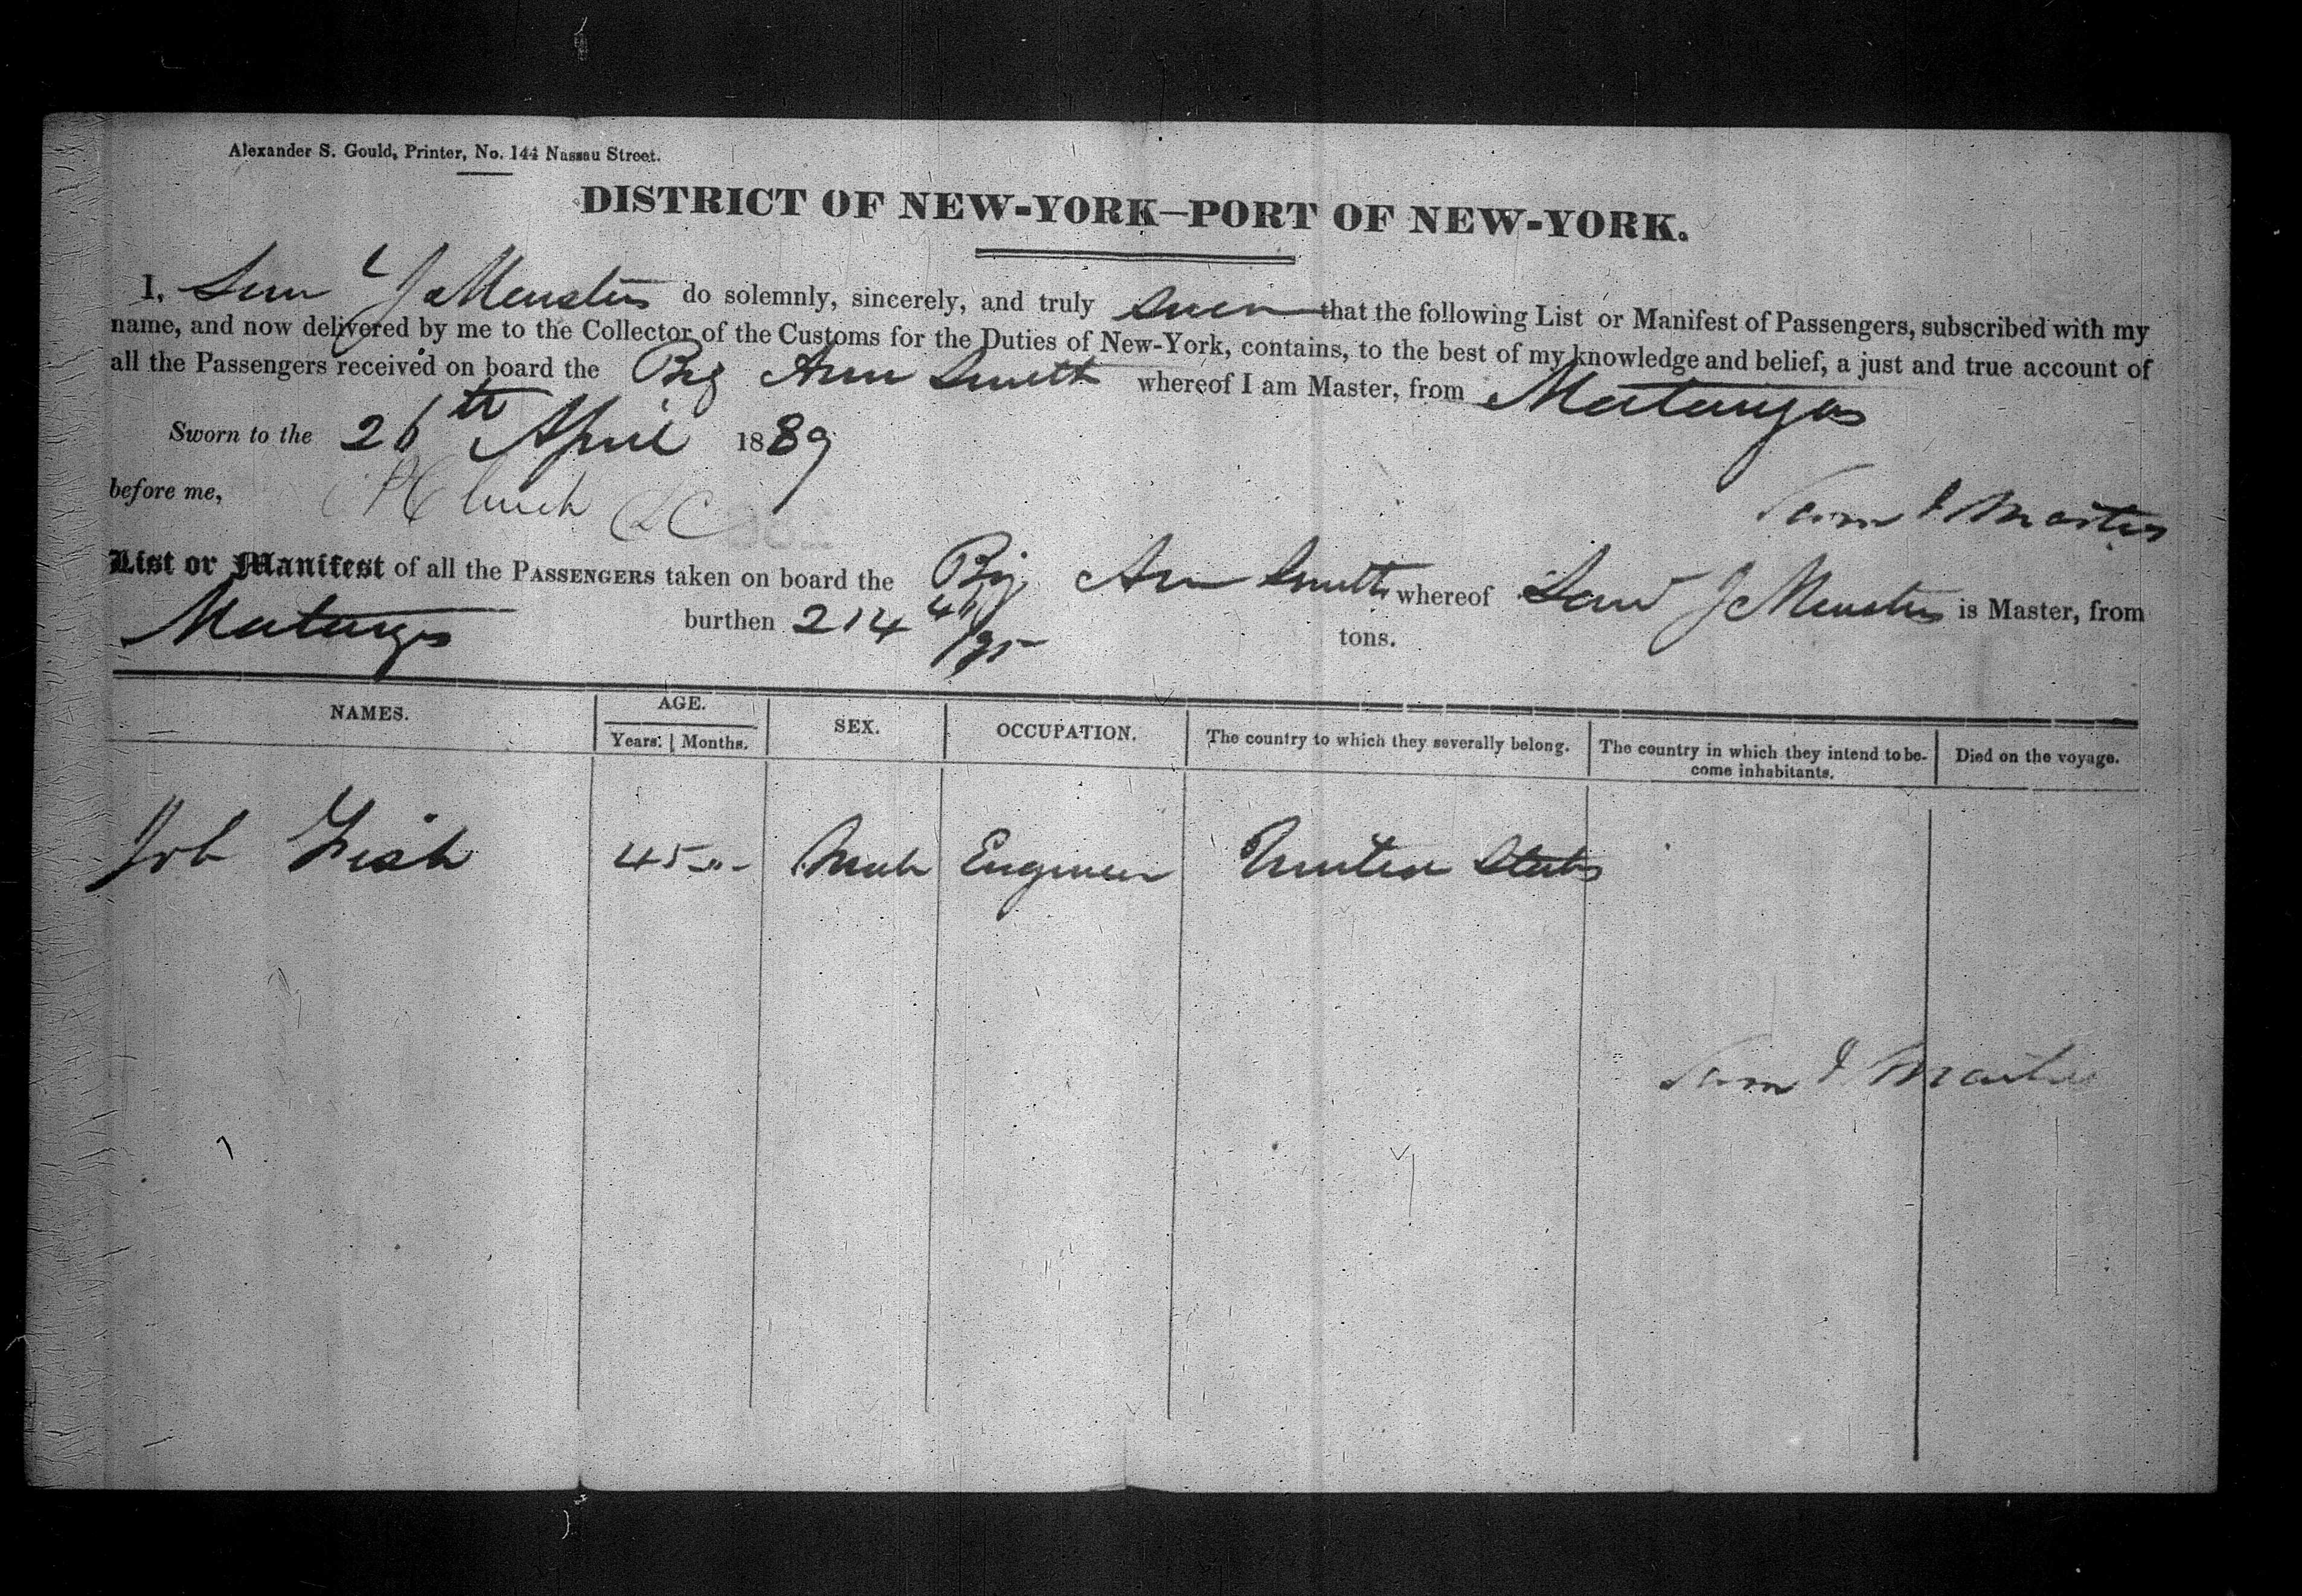 Alexander S. Gould, Printer, No. 144 Nassau Street.
DISTRICT OF NEW-YORK—PORT OF NEW-YORK.
I, do solemnly, sincerely, and truly that the following List or Manifest of Passengers, subscribed with my
name, and now delivered by me to the Collector of the Customs for the Duties of New-York, contains, to the best of my knowledge and belief, a just and true account of
all the Passengers received on board the Brig Ann Smith whereof I am Master, from Matanzas
Sworn to the 26th April 1839
before me,
List or Manifest of all the PASSENGERS taken on board the Brig Ann Smith whereof is Master, from
Matanzas burthen 214 /95 tons.
NAMES. AGE. SEX. OCCUPATION. The country to which they severally belong. The country in which they intend to be- Died on the voyage.
Years. Months. come inhabitants.
Job Fish 45 Male Engineer United States